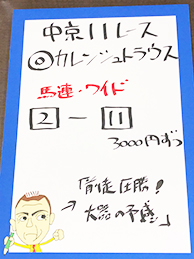 中京11レース
◎カレンシュトラウス
馬連・ワイド
2-11
3000円ずつ
→「前走圧勝!
大器の予感」